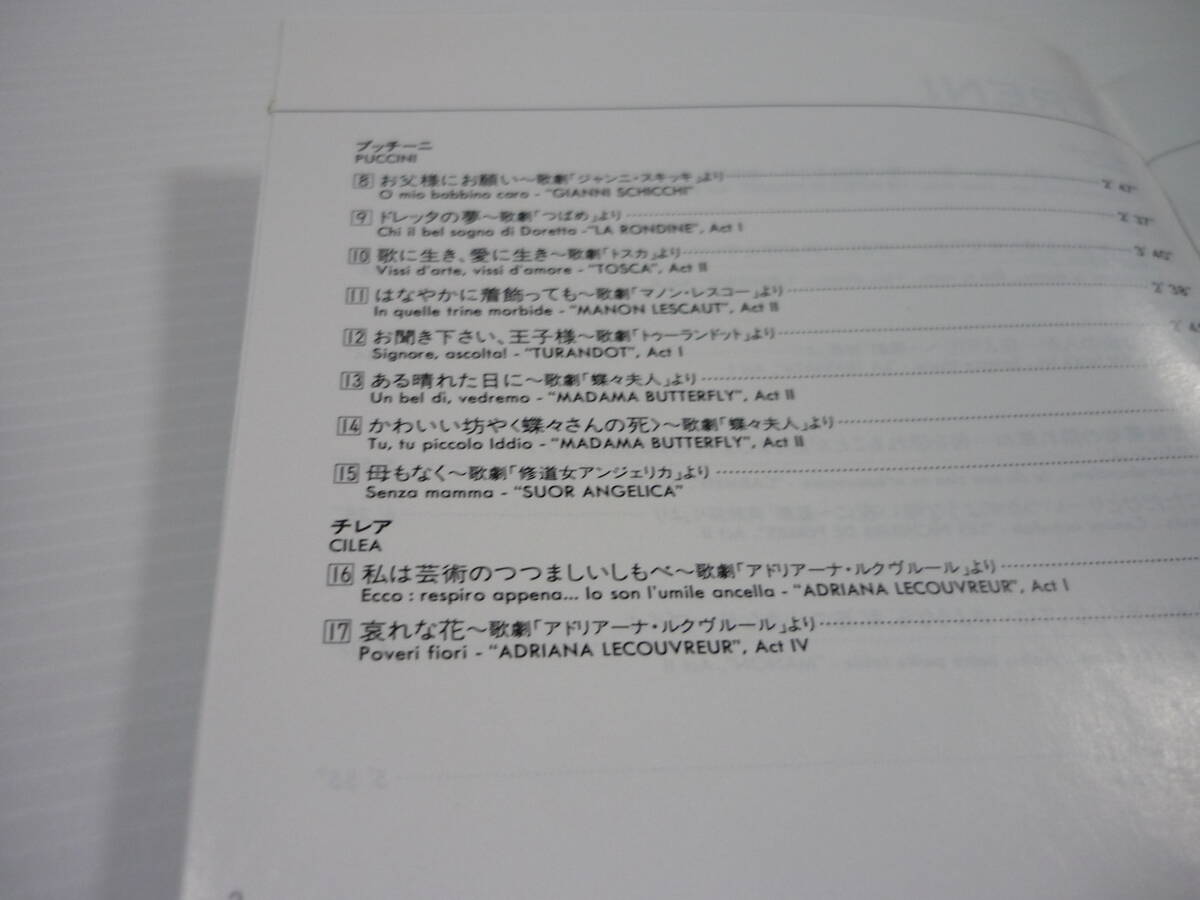 プッチーニ
PUCCINI
8 お父様にお願い～歌劇「ジャンニ・スキッキ」より
O mio babbino caro - "GIANNI SCHICCHI"
9 ドレッタの夢～歌劇「つばめ」より
Chi il bel sogno di Doretta - "LA RONDINE", Act I
10 歌に生き、愛に生き～歌劇「トスカ」より
Vissi d'arte, vissi d'amore - "TOSCA", Act II
11 はなやかに着飾っても～歌劇「マノン・レスコー」より
In quelle trine morbide - "MANON LESCAUT", Act II
12 お聞き下さい、王子様～歌劇「トゥーランドット」より
Signore, ascolta! - "TURANDOT", Act I
13 ある晴れた日に～歌劇「蝶々夫人」より
Un bel di, vedremo - "MADAMA BUTTERFLY", Act II
14 かわいい坊や〈蝶々さんの死〉～歌劇「蝶々夫人」より
Tu, tu piccolo Iddio - "MADAMA BUTTERFLY", Act II
15 母もなく～歌劇「修道女アンジェリカ」より
Senza mamma - "SUOR ANGELICA"
チレア
CILEA
16 私は芸術のつつましいしもべ～歌劇「アドリアーナ・ルクヴルール」より
Ecco : respiro appena... Io son l'umile ancella - "ADRIANA LECOUVREUR", Act I
17 哀れな花～歌劇「アドリアーナ・ルクヴルール」より
Poveri fiori - "ADRIANA LECOUVREUR", Act IV